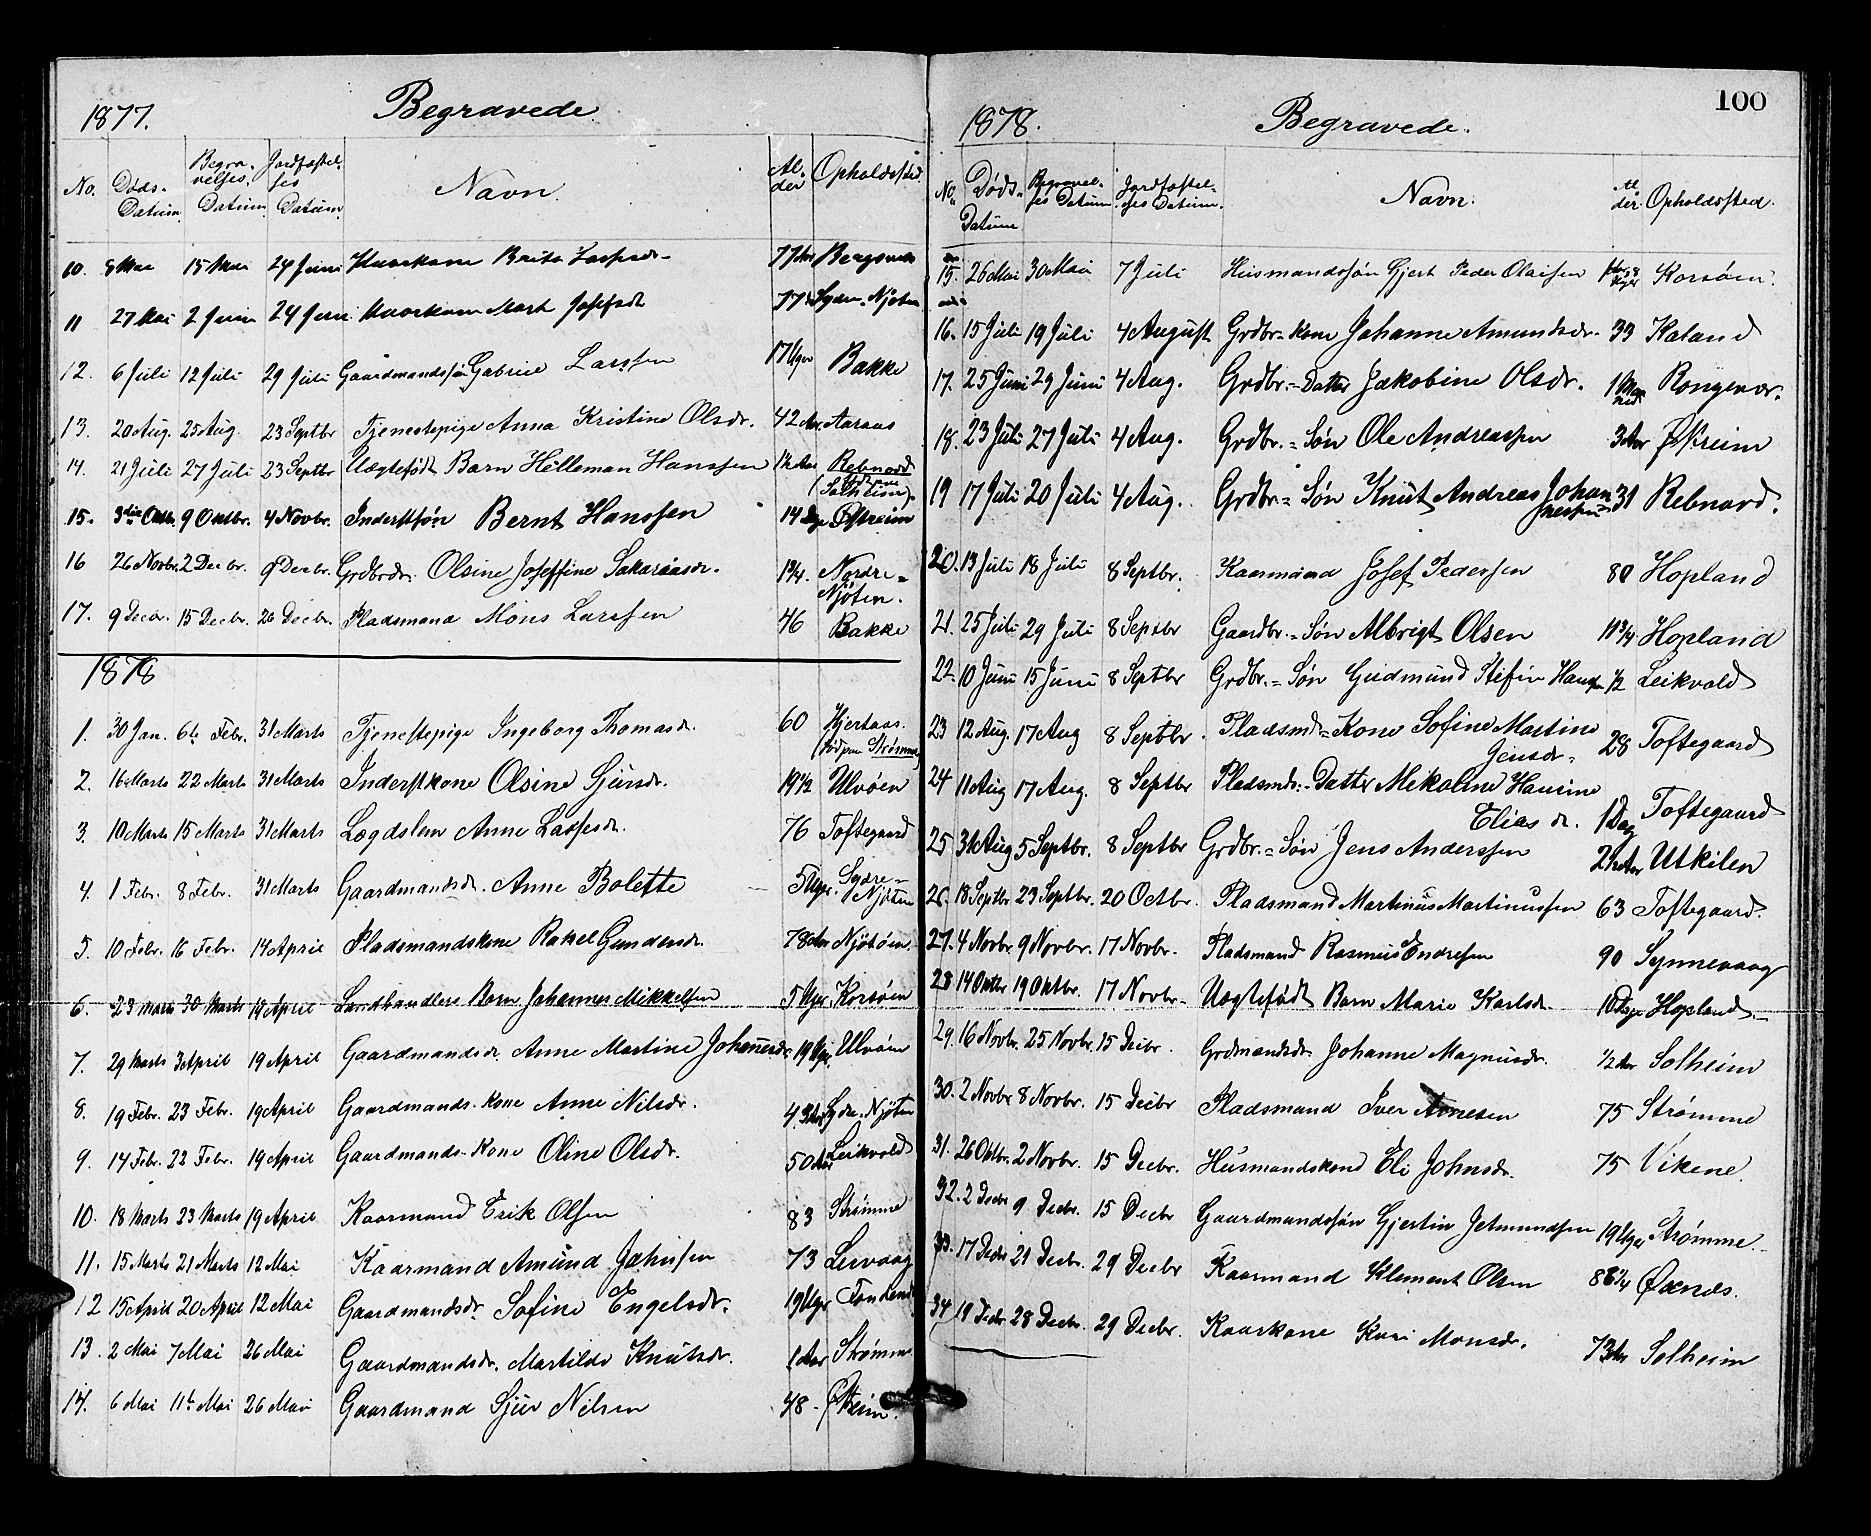 1877. Begravede
No. Døds-Datum. Begravelses-Datum. Jordfæstelses Datum. Navn. Alder Opholdssted
10. 8 Mai 15 Mai 24 Juni Kaarkone Brita Lassesdr. 77 Aar
11 27 Mai 2 Juni 24 Juni Kaarkone Marta Josefsdr 77 Sydre-Njøten
12. 6 Juli 12 Juli 29 Juli Gaardmandssøn Gabriel Larssen 17 Uger Bakke
13. 20 Aug. 25 Aug. 23 Septbr Tjenestepige Anna Kristine Olsdr. 42 Aar. Aaraas
14. 21 Juli 27 Juli 23 Septbr Uægtefødt Barn Helleman Hanssen 1½ Aar Rebnord
(Solheim).
15. 3die Oktb. 9 Oktbr. 4 Novbr. Inderstsøn Bernt Hanssen 14 Dge Østreim
16 26 Novbr. 2 Decbr. 9 Decbr. Grdbrdr. Olsine Joseffine Sakariasdr. 1¾. Nordre-
Njøten.
17. 9 Decbr. 15 Decbr. 26 Decbr. Pladsmand Mons Larssen 46 Bakke
1878
1. 30 Jan. 6te Febr. 31 Marts Tjenestepige Ingeborg Thomasdr. 60 Hjertaas.
Strømme
2. 16 Marts 22 Marts 31 Marts Inderstkone Olsine Sjursdr. 19½ Ulvøen
3. 10 Marts 15 Marts 31 Marts Lægdslem Anne Lassesdr. 76 Toftegaard
4. 1 Febr. 8 Febr. 31 Marts Gaardmandsdr. Anne Bolette 5 Uger. Sydre-
Njøten
5. 10 Febr. 16 Febr. 14 April Pladsmandskone Rakel Gundersdr. 78 Aar Njøtøen
6. 23 Marts 30 Marts 14 April Landhandlers Barn Johannes Mikkelsen 5 Uger Korsøen
7. 29 Marts 3 April 19 April Gaardmandsdr. Anne Martine Johannesdr. 19 Uger. Ulvøen
8. 19 Febr. 23 Febr. 19 April Gaardmands-Kone Anne Nilsdr. Sydre-Njøten
9. 14 Febr. 22 Febr. 19 April Gaardmands-Kone Oline Olsdr. 50 Aar Leikvold
10. 18 Marts 23 Marts 19 April Kaarmand Erik Olsen 83 Strømme
11. 15 Marts 21 Marts 12 Mai Kaarmand Amund Johnsen 73 Lervaag
12 15 April 20 April 12 Mai Gaardmandsdr. Sofine Engelsdr. 19 Uger
13. 2 Mai 7 Mai 26 Mai Gaardmandsdr. Martilde Knutsdr. 1 Aar Strømme
14. 6 Mai 11te Mai 26 Mai Gaardmand Sjur Nilsen 48- Østreim.
100
1878. Begravede.
No. Døds-Datum Begravelses Datum Jordfæstelses Datum. Navn. Alder. Opholdssted.
15. 26 Mai 30 Mai 7 Juli Husmandssøn Gjert Peder Olaisen Korsøen.
16. 15 Juli 19 Juli 4 August Grdbr.-Kone Johanne Amundsdr. 33 Kaland
17. 25 Juni 29 Juni 4 Aug. Grdbr.-Datter Jakobine Olsdr. 1 Maaned Rongevær.
18. 23 Juli 27 Juli 4 Aug. Grdbr.-Søn Ole Andreassen 3 Aar Østreim
19 17 Juli 20 Juli 4 Aug. Grdbr.-Søn Knut Andreas Johan
nessen 31 Rebnord.
20. 13 Juli 18 Juli 8 Septbr. Kaarmand Josef Pedersen 80 Hopland
21. 25 Juli 29 Juli 8 Septbr Gaardbr.-Søn Albrigt Olsen 11¾ Hopland
22. 10 Juni 15 Juni 8 Septbr Grdbr.-Søn Gudmund Stefin Hansen ½ Leikvold
23 12 Aug. 17 Aug 8 Septbr. Pladsmd-Kone Sofine Martine
Jensdr. 28 Toftegaard
24 11 Aug 17 Aug. 8 Septbr Pladsmds.-Datter Mekaline Hansine
Elias dr. 1 Dag Toftegaard
25 31 Aug 5 Septbr. 8 Septbr Grdbr.-Søn Jens Anderssen Utkilen
26. 18 Septbr 23 Septbr. 20 Octbr. Pladsmand Martinus Martinussen 63 Toftegaard.
27. 4 Novbr. 9 Novbr. 17 Novbr. Pladsmand Rasmus Endresen 90 Synnevaag
28 14 Oktbr 19 Oktbr. 17 Novbr. Uægtefødt Barn Marie Karlsdr. 10 Dage Hopland
29. 16 Novbr. 25 Novbr. 15 Decbr. Grdmandsdr. Johanne Magnusdr. ½ Aar Solheim
30. 2 Novbr 8 Novbr. 15 Decbr Pladsmand Iver Arnesen 75 Strømme
31. 26 Oktbr. 2 Novbr. 15 Decbr. Husmandskone Eli Johnsdr. 75 Vikene.
32. 2 Decbr 9 Decbr. 15 Decbr Gaardmandssøn Gjertin Jetmundsen 19 Uger Strømme.
33. 17 Decbr 21 Decbr. 29 Decbr Kaarmand Klement Olsen 88¼ Øxnæs.
34 18 Decbr 28 Decbr. 29 Decbr. Kaarkone Kari Monsdr. 73 Aar Solheim